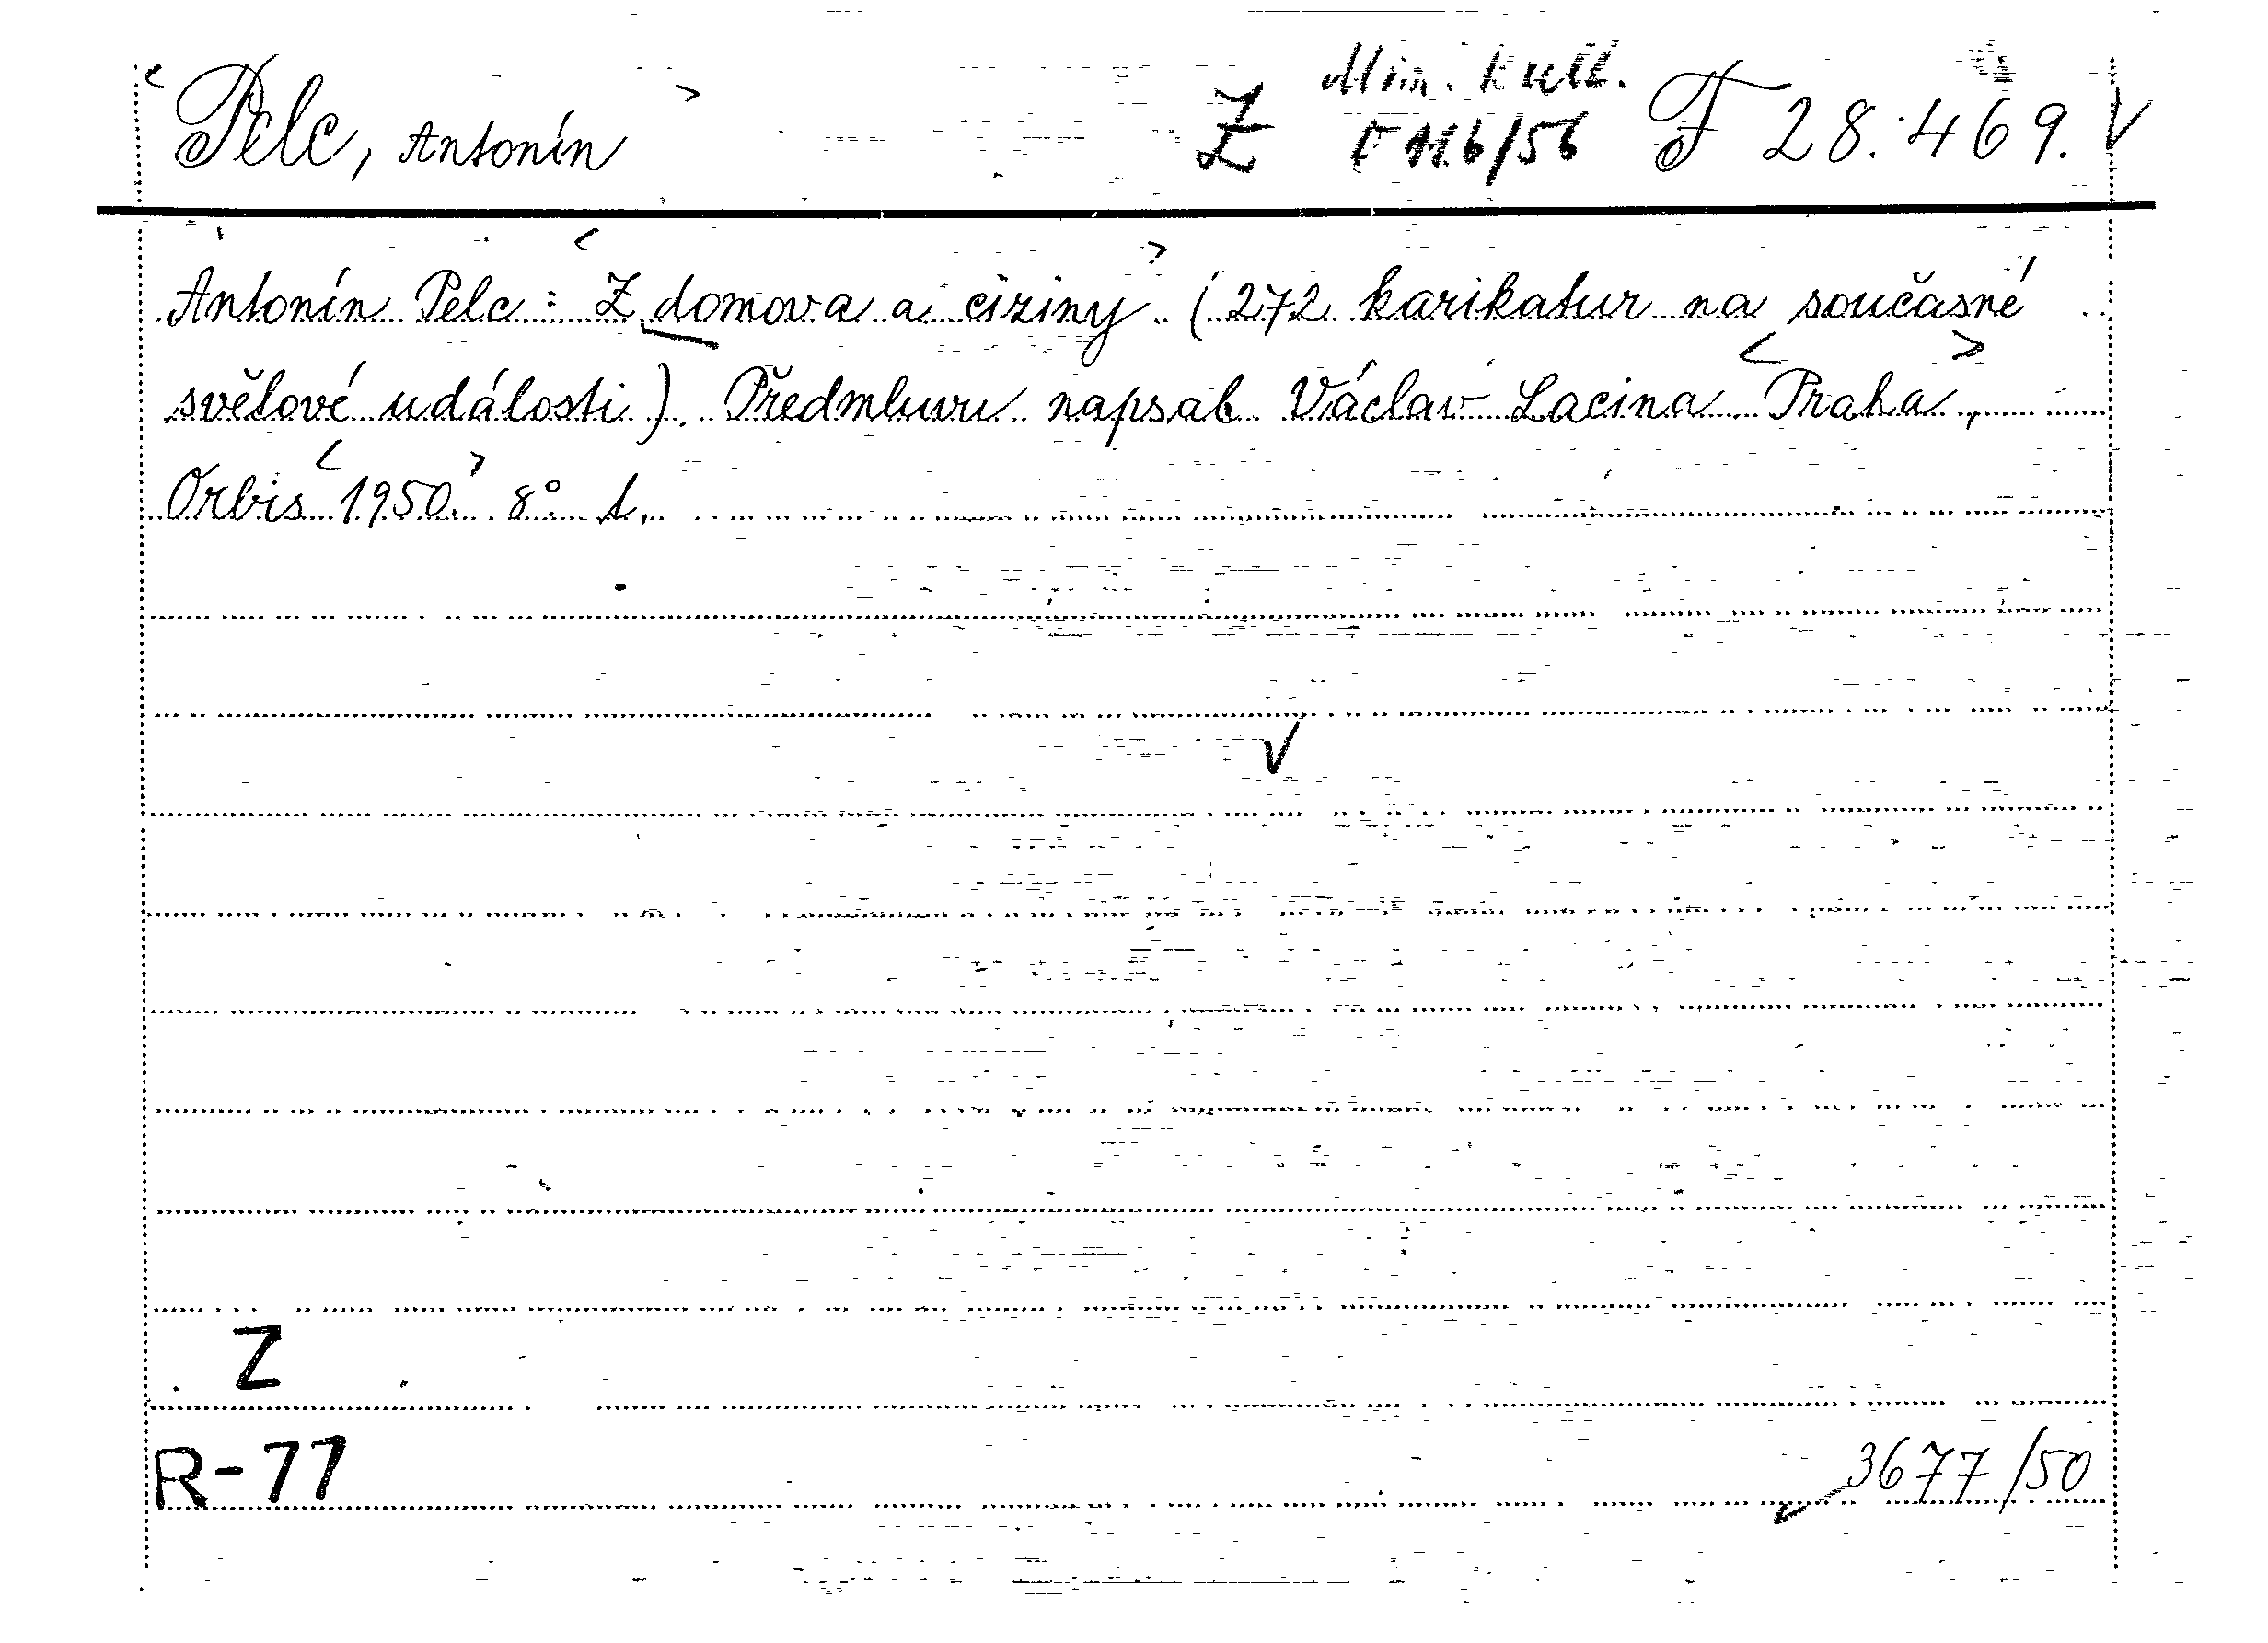 Pelc, Antonín Z Min. kult. F 116/56 F 28.469. V
Antonín Pelc: Z domova a ciziny (272 karikatur na současné
světové události). Předmluvu napsal Václav Lacina. Praha,
Orbis 1950. 8° 1.
Z
R-77
3677/50